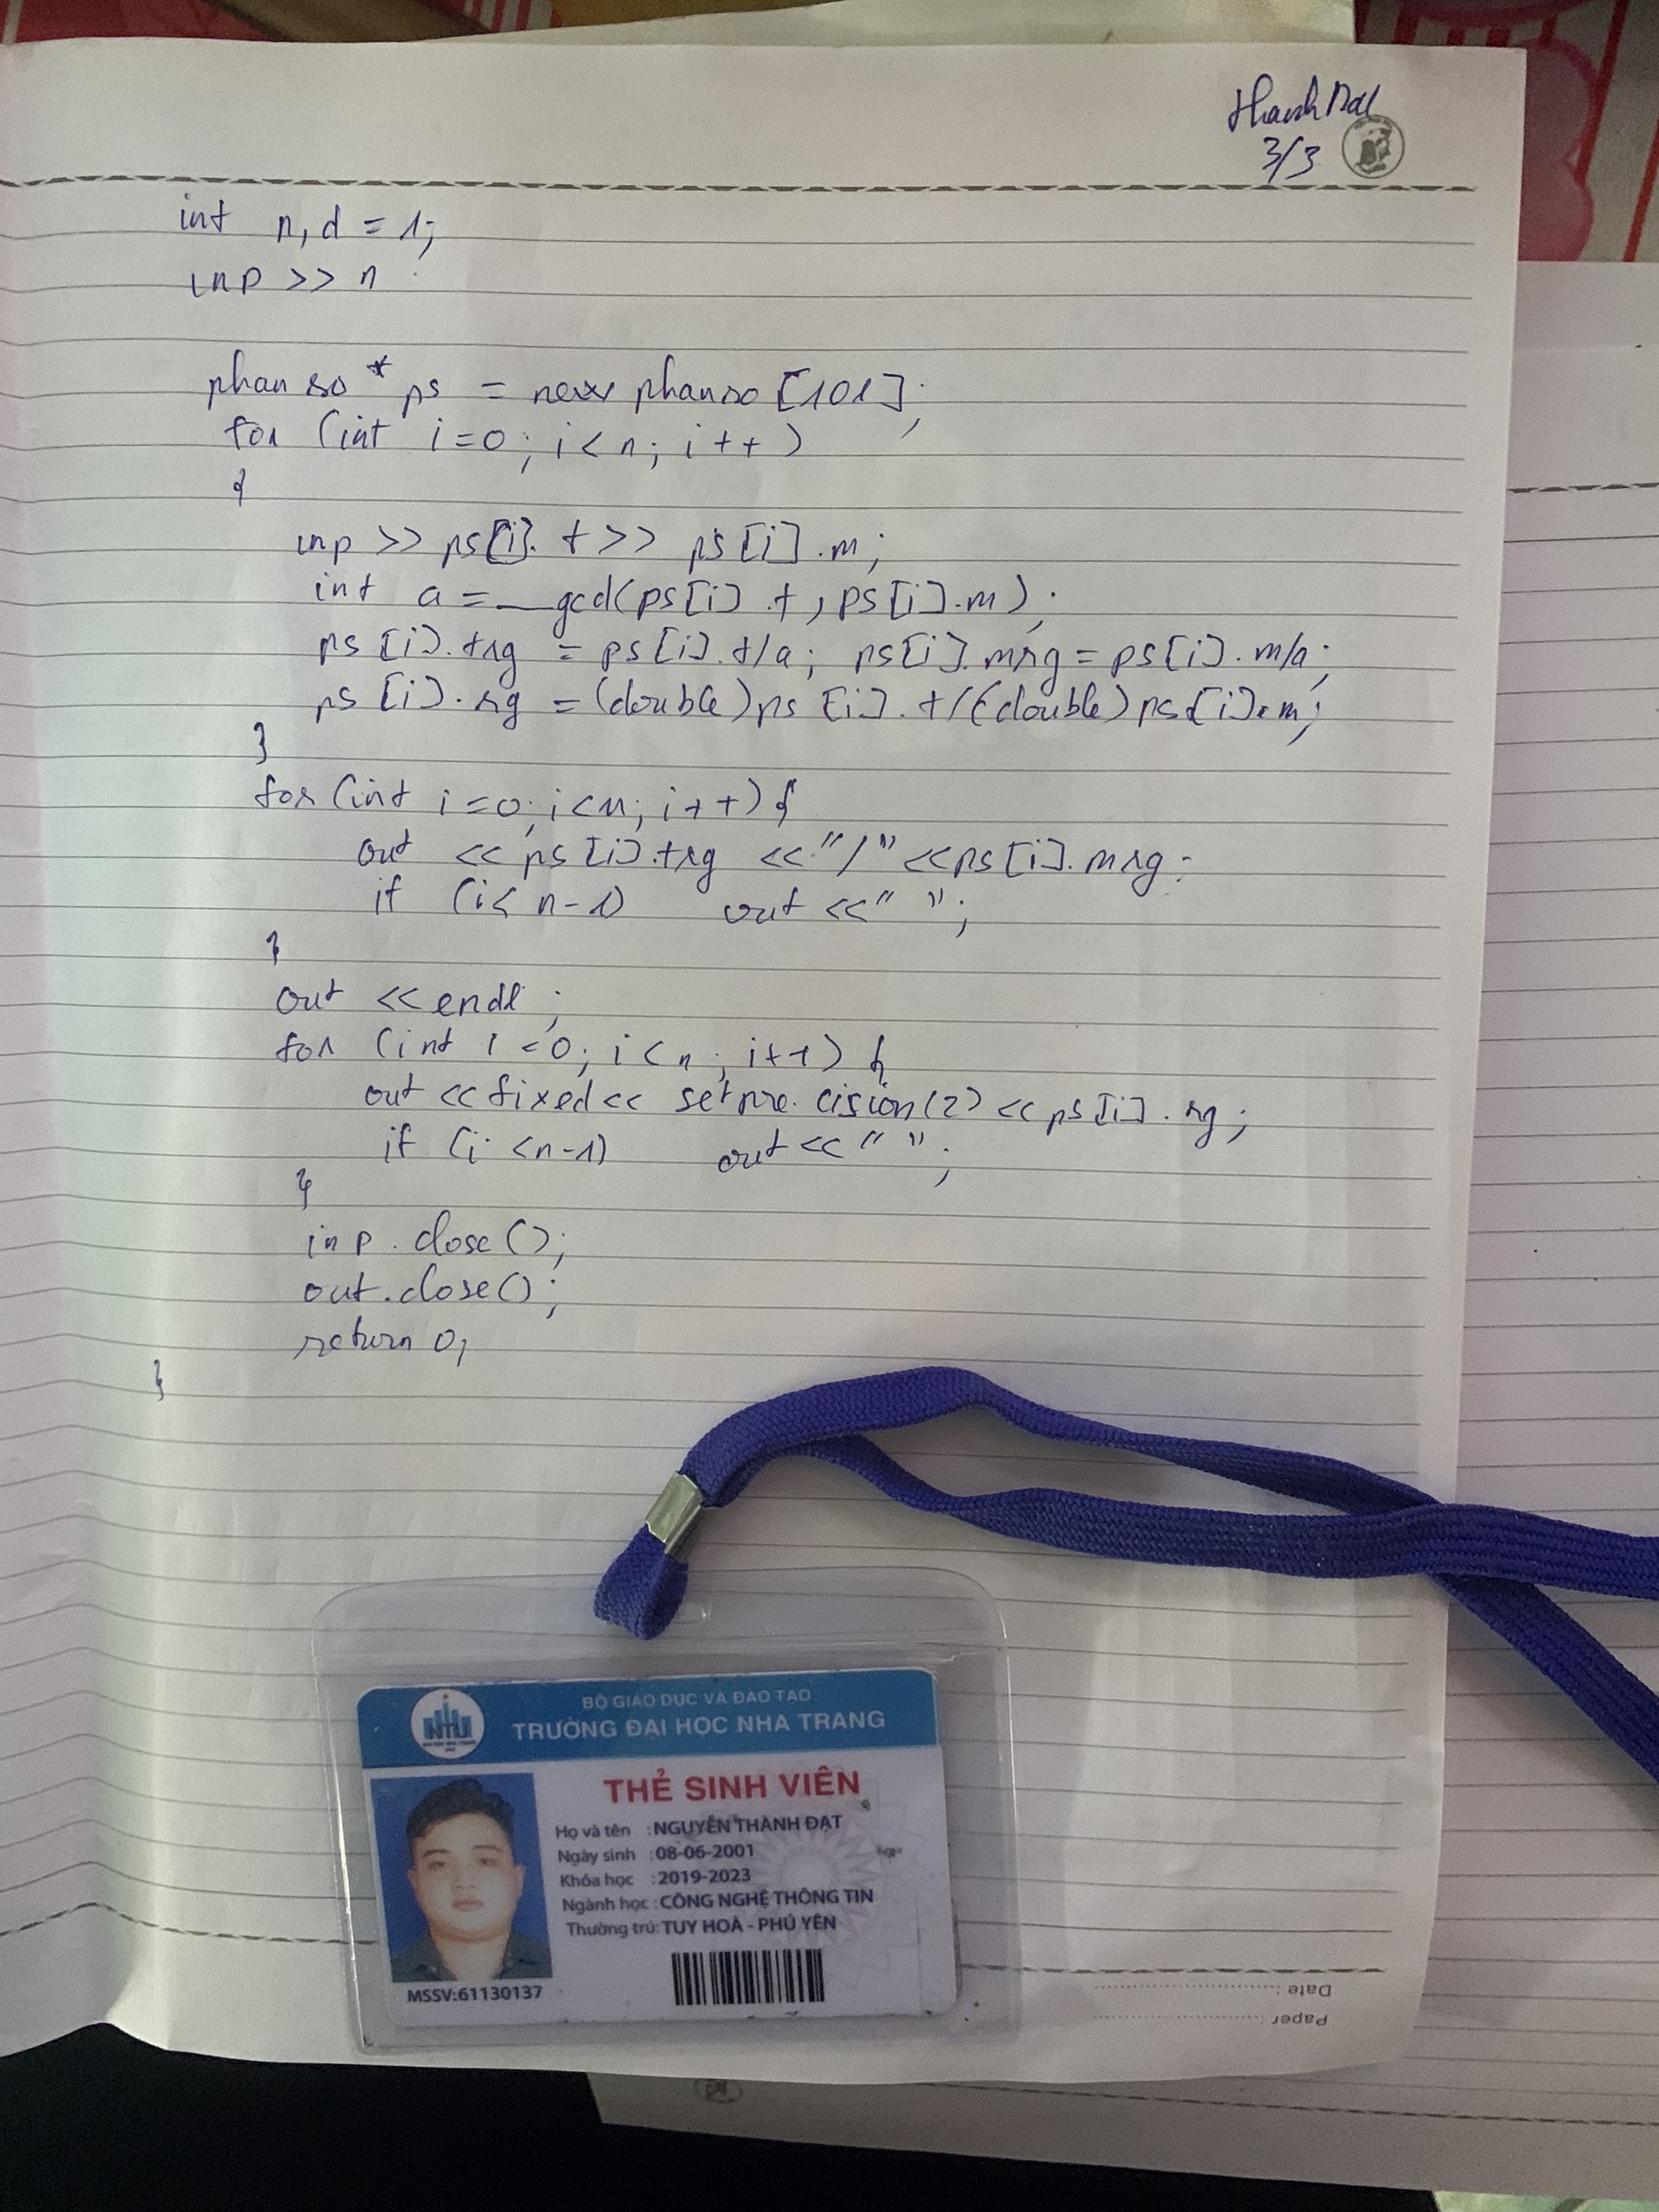 Thanh Đạt
3/3
int n, d = 1;
inp >> n
phanso * ps = new phanso [101];
for (int i=0; i<n; i++)
{
inp >> ps[i]. t >> ps[i].m;
int a = __gcd(ps[i].t, ps[i].m);
ps[i].trg = ps[i].t/a; ps[i].mrg = ps[i].m/a;
ps[i].rg = (double)ps[i].t/(double)ps[i].m;
}
for (int i=0; i<n; i++) {
out << ps[i].trg << "/" << ps[i].mrg;
if (i< n-1) out << " ";
}
out << endl;
for (int i=0; i<n; i++) {
out << fixed << setprecision(2) << ps[i].rg;
if (i <n-1) out << " ";
}
inp.close();
out.close();
return 0;
}
NTU
BỘ GIÁO DỤC VÀ ĐÀO TẠO
TRƯỜNG ĐẠI HỌC NHA TRANG
THẺ SINH VIÊN
Họ và tên : NGUYỄN THÀNH ĐẠT
Ngày sinh : 08-06-2001
Khóa học : 2019-2023
Ngành học : CÔNG NGHỆ THÔNG TIN
Thường trú: TUY HOÀ - PHÚ YÊN
MSSV:61130137
Date :
Paper :